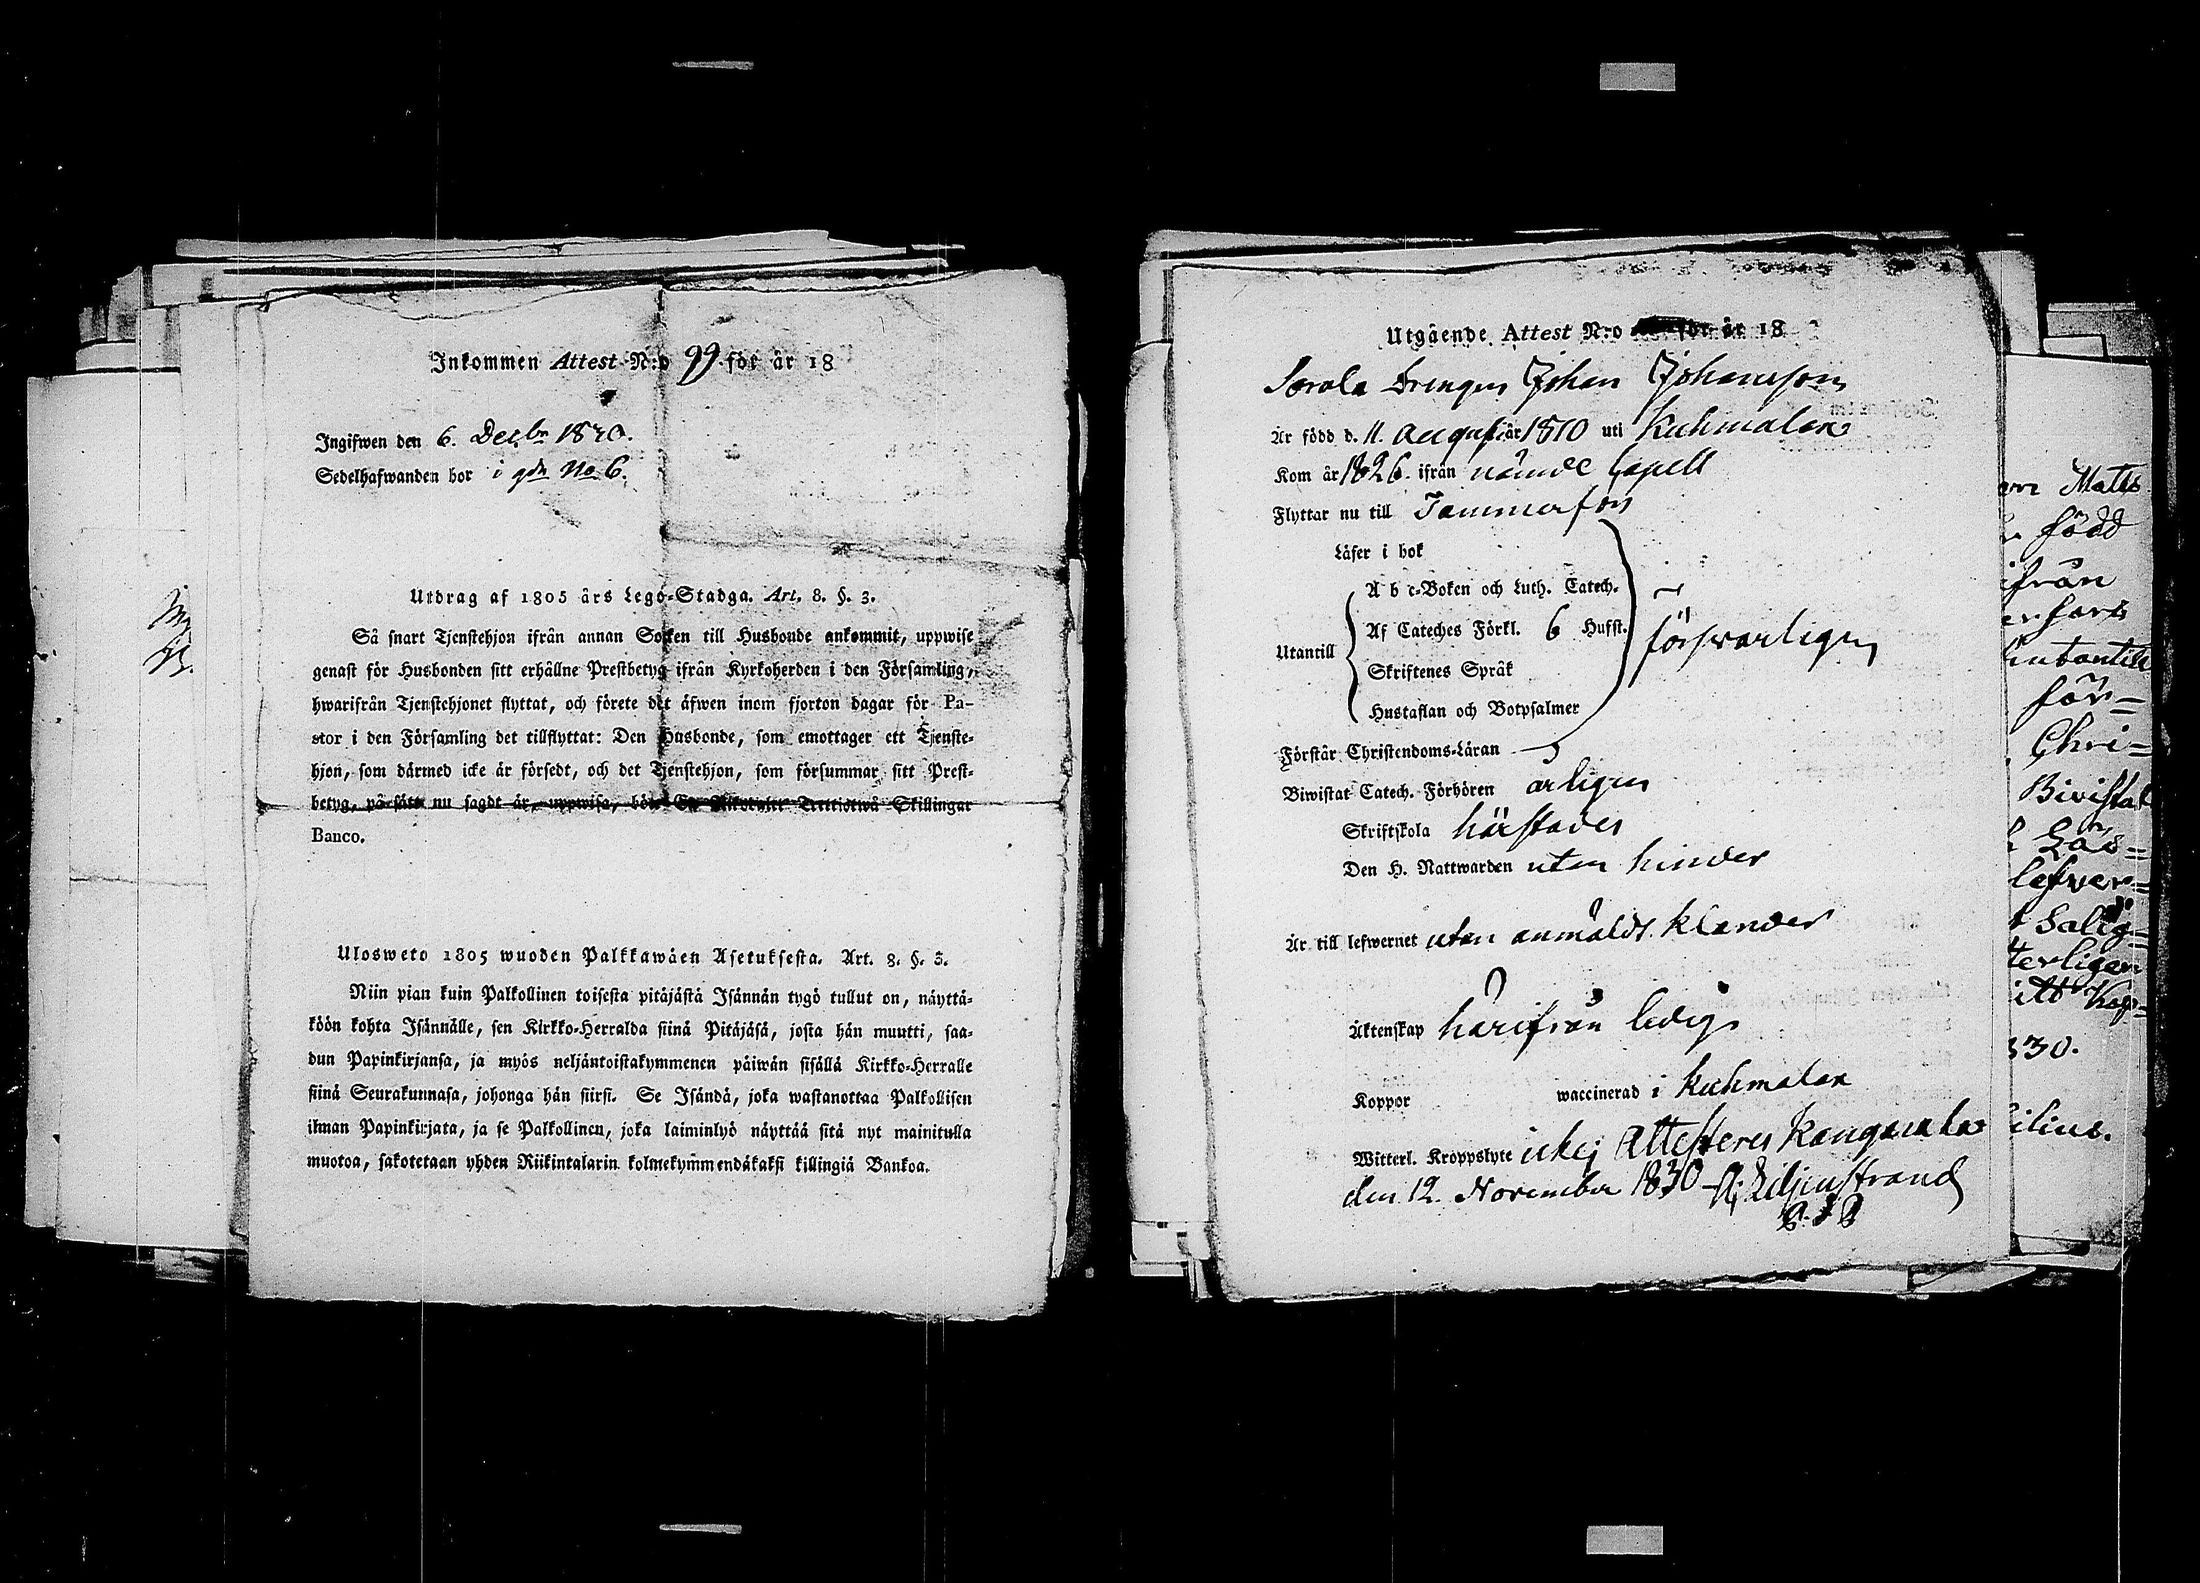 Inkommen Attest N:o 99 för år 18
Ingifwen den 6. Decbr 1830.
Sedelhafwanden bor i gdn No 6.
Utdrag af 1805 års Lego-Stadga. Art. 8. §. 3.
Så snart Tjenstehjon ifrån annan Socken till Husbonde ankommit, uppwise
genast för Husbonden sitt erhållne Prestbetyg ifrån Kyrkoherden i den Församling,
hwarifrån Tjenstehjonet flyttat, och förete det åfwen inom fjorton dagar för Pa-
stor i den Församling det tillflyttat: Den Husbonde, som emottager ett Tjenste-
hjon, som dårmed icke år försedt, och det Tjenstehjon, som försummar sitt Prest-
betyg, på sått nu sagdt år, uppwisa, böte En Riksdaler Trettiotwå Skillingar
Banco.
Ulosweto 1805 wuoden Palkkawåen Asetuksesta. Art. 8. §. 3.
Niin pian kuin Palkollinen toisesta pitåjåstå Isånnån tygö tullut on, nåyttå-
köön kohta Isånnålle, sen Kirkko-Herralda siinå Pitåjåså, josta hån muutti, saa-
dun Papinkirjansa, ja myös neljåntoistakymmenen påiwån sisållå Kirkko-Herralle
siinå Seurakunnasa, johonga hån siirsi. Se Isåndå, joka wastanottaa Palkollisen
ilman Papinkirjata, ja se Palkollinen, joka laiminlyö nåyttåå sitå nyt mainitulla
muotoa, sakotetaan yhden Riikintalarin kolmekymmendåkaksi killingiå Bankoa.
Utgående Attest N:o för år 18
Sorola Drengen Johan Johansson
Är född d. 11. August år 1810 uti Kuhmalax
Kom år 1826. ifrån nämde Capell
Flyttar nu till Tammerfors
Låser i bok
A b c-Boken och Luth. Catech.
Af Cateches Förkl. 6 Hufst.
Utantill försvarligen
Skriftenes Språk
Hustaflan och Botpsalmer
Förstår Christendoms-Låran
Biwistat Catech. Förhören årligen
Skriftskola härstädes
Den H. Nattwarden utan hinder
Är till lefwernet utan anmäldt klander
Åktenskap härifrån ledig
Koppor waccinerad i Kuhmalax
Witterl. Kroppslyte ickej Attesteres Kangasala
den 12. November 1830 Liljenstrand
Mats
född
ifrån
erfors
utantill
för=
Chri=
Bivistat
lefver=
Salig=
terligen
itt Kop=
830.
ilius.